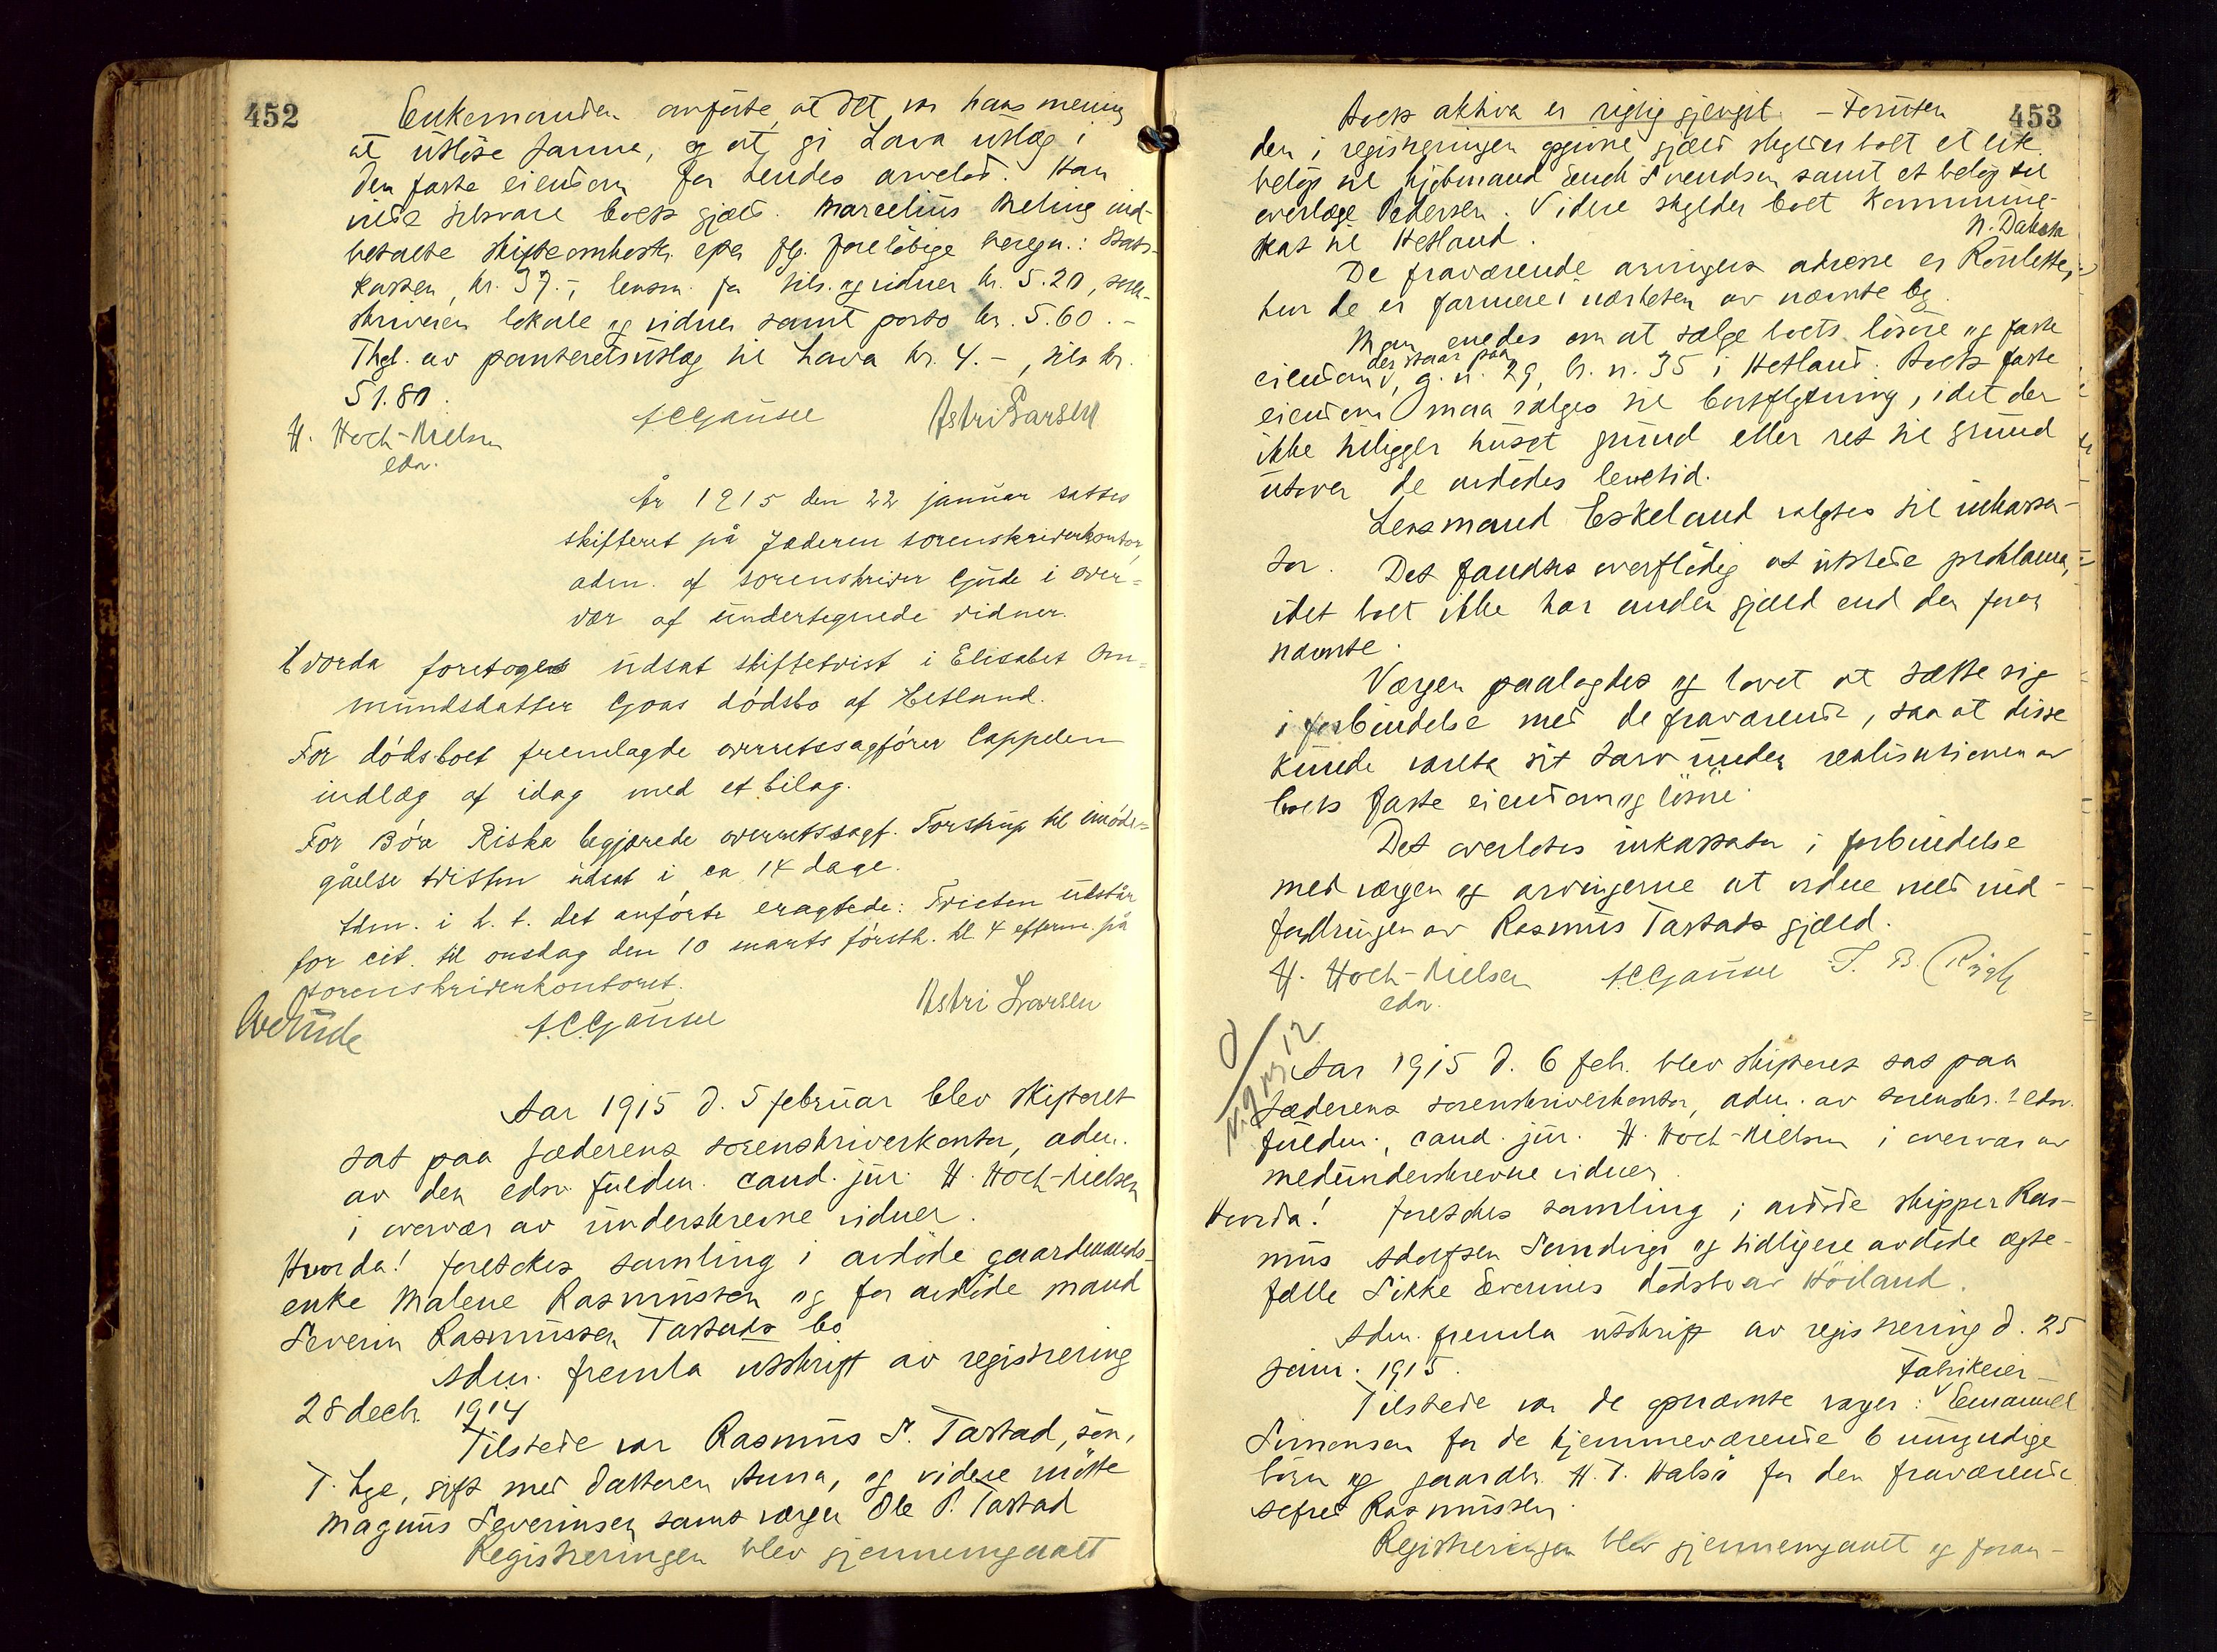 452
Enkemanden anførte, at det var hans mening
at utløse Janne, og at gi Lava utlæg i
den faste eiendom for hendes arvelod. Han
vilde tilsvare boets gjæld. Marcelius Meling ind-
betalte skifteomkostn. efter flg. foreløbige beregn.: Stats-
kassen, kr. 37.-, lensm. for tils. og vidner kr. 5.20, soren-
skriveren lokale og vidner samt porto kr. 5.60.-
Thgl. av panteretsutlæg til Lava kr. 4.-, tils kr.
51.80.
H. Hoch-Nielsen
edsv.
A C Gausel
Astri Larsen
År 1915 den 22 januar sattes
skifteret på Jæderen sorenskriverkontor,
adm. af sorenskriver Gjúde i over=
vær af undertegnede vidner.
Hvorda foretoges udsat skiftetvist i Elisabet Om=
mundsdatter Goas dødsbo af Hetland.
For dødsboet fremlagde overretssagfører Cappelen
indlæg af idag med et bilag.
For Bór Riska begjærede overretssagf. Torstrup til imøde=
gåelse tvisten udsat i ca 14 dage.
Adm. i h. t. det anførte eragtede: Tvisten udstår
for cit. til onsdag den 10 marts førstk. kl. 4 efterm. på
sorenskriverkontoret.
A C Gausel
Astri Larsen
Aar 1915 d. 5 februar blev skifteret
sat paa Jæderens sorenskriverkontor, adm.
av den edsv. fuldm. cand. jur. H. Hoch-Nielsen
i overvær av underskrevne vidner.
Hvorda! foretokes samling i avdøde gaardmands-
enke Malene Rasmussen og før avdøde mand
Severin Rasmussen Tastads bo.
Adm. fremla utskrift av registrering
28 decbr. 1914
Tilstede var Rasmus S. Tastad, søn,
T. Lge, gift med datteren Anna, og videre møtte
Magnus Severinsen samt værgen Ole P. Tastad
Registreringen blev gjennemgaaet
453
Boets aktiva er rigtig gjengit. - Foruten
den i registreringen opgivne gjæld skylder boet et lite
beløp til kjøbmand Svendsen samt et beløp til
overlæge Pedersen. Videre skylder boet kommune-
skat til Hetland.
N. Dakota
De fraværende arvingers adresse er Roulette,
hvor de er farmere i nærheten av nævnte by.
Man enedes om at sælge boets løsøre og faste
der staar paa
eiendom, g. n. 29, br. n. 35 i Hetland. Boets faste
eiendom maa sælges til bortflytning, idet der
ikke tilligger huset grund eller ret til grund
utover de avdødes levetid.
Lensmand Eskeland valgtes til inkassa-
tor. Det fandtes overflødig at utstede proklama,
idet boet ikke har anden gjæld end den foran
nævnte.
Værgen paalagdes og lovet at sætte sig
i forbindelse med de fraværende, saa at disse
kunde vareta sit tarv under realisationen av
boets faste eiendom og løsøre.
Det overlotes inkassator i forbindelse
med værgen og arvingerne at ordne med ind-
fordringen av Rasmus Tastads gjæld.
H. Hoch-Nielsen
edsv.
A C Gausel
Aar 1915 d. 6 feb. blev skifteret sat paa
Jæderens sorenskriverkontor, adm. av sorenskr.s edsv.
fuldm., cand. jur. H. Hoch-Nielsen i overvær av
medunderskrevne vidner.
Hvorda! foretokes samling i avdøde skipper Ras-
mus Adolfsen og tidligere avdøde ægte-
fælle Sikke Severines dødsbo av Høiland.
Adm. fremla utskrift av registrering d. 25
jan. 1915.
Fabrikeier
Tilstede var de opnævnte værger: Emanuel
Simonsen for de hjemmeværende 6 umyndige
børn og gaardbr. H. T. Halsø for den fraværende
Rasmussen.
Registreringen blev gjennemgaaet og foran-